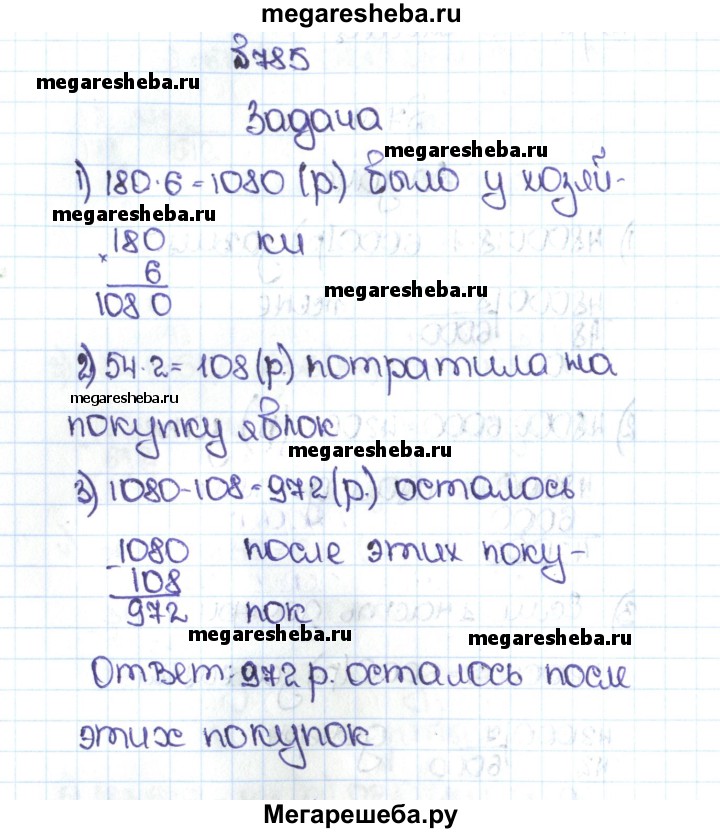 megaresheba.ru
№785
megaresheba.ru
Задача
megaresheba.ru
1) 180·6=1080 (р.) было у хозяй-
megaresheba.ru
180 ки
× 6
1080
megaresheba.ru
2) 54·2=108(р.) потратила на
megaresheba.ru
покупку яблок
megaresheba.ru
3) 1080-108=972(р.) осталось
1080 после этих поку-
- 108
972 пок
megaresheba.ru megaresheba.ru
Ответ: 972 р. осталось после
этих покупок
Мегарешеба.ру